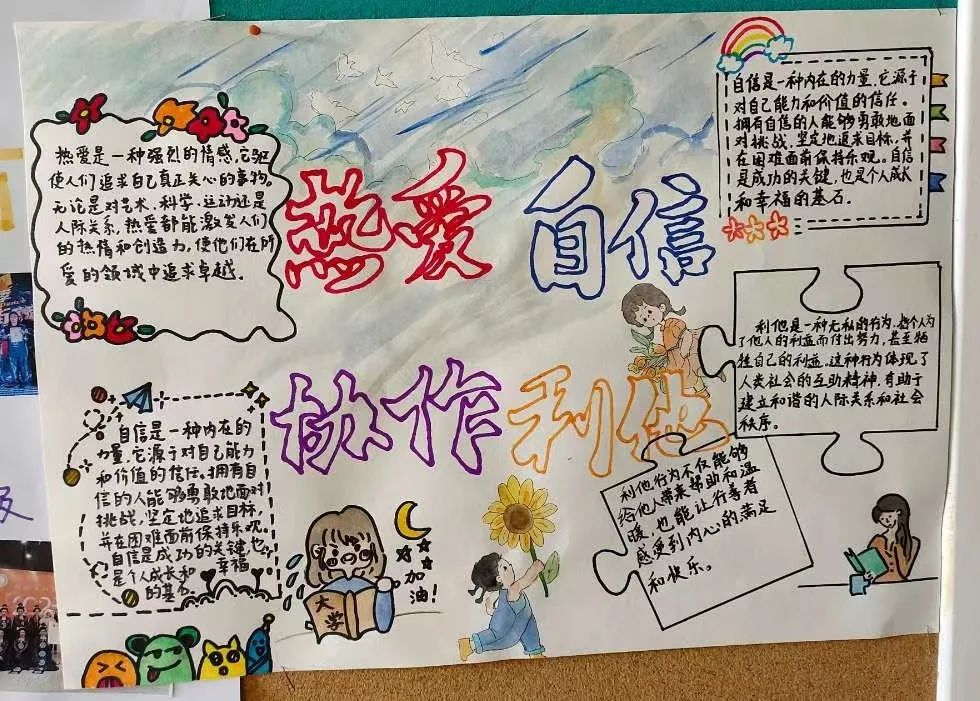 热爱是一种强烈的情感，它驱
使人们追求自己真正关心的事物。
无论是对艺术、科学、运动还是
人际关系，热爱都能激发人们
的热情和创造力，使他们在所
爱的领域中追求卓越.
热爱 自信
自信是一种内在的力量，它源于
对自己能力和价值的信任。
拥有自信的人能够勇敢地面
对挑战，坚定地追求目标，并
在困难面前保持乐观。自信
是成功的关键，也是个人成长
和幸福的基石.
利他是一种无私的行为，指个人为
了他人的利益而付出努力，甚至牺
牲自己的利益.这种行为体现了
人类社会的互助精神，有助于
建立和谐的人际关系和社会
秩序。
协作 利他
自信是一种内在的
力量，它源于对自己能力
和价值的信任。拥有自
信的人能够勇敢地面对
挑战，坚定地追求目标，
并在困难面前保持乐观.
自信是成功的关键，也
是个人成长和幸福
的基石.
利他行为不仅能够
给他人带来帮助和温
暖，也能让行善者
感受到内心的满足
和快乐。
大学
加油！